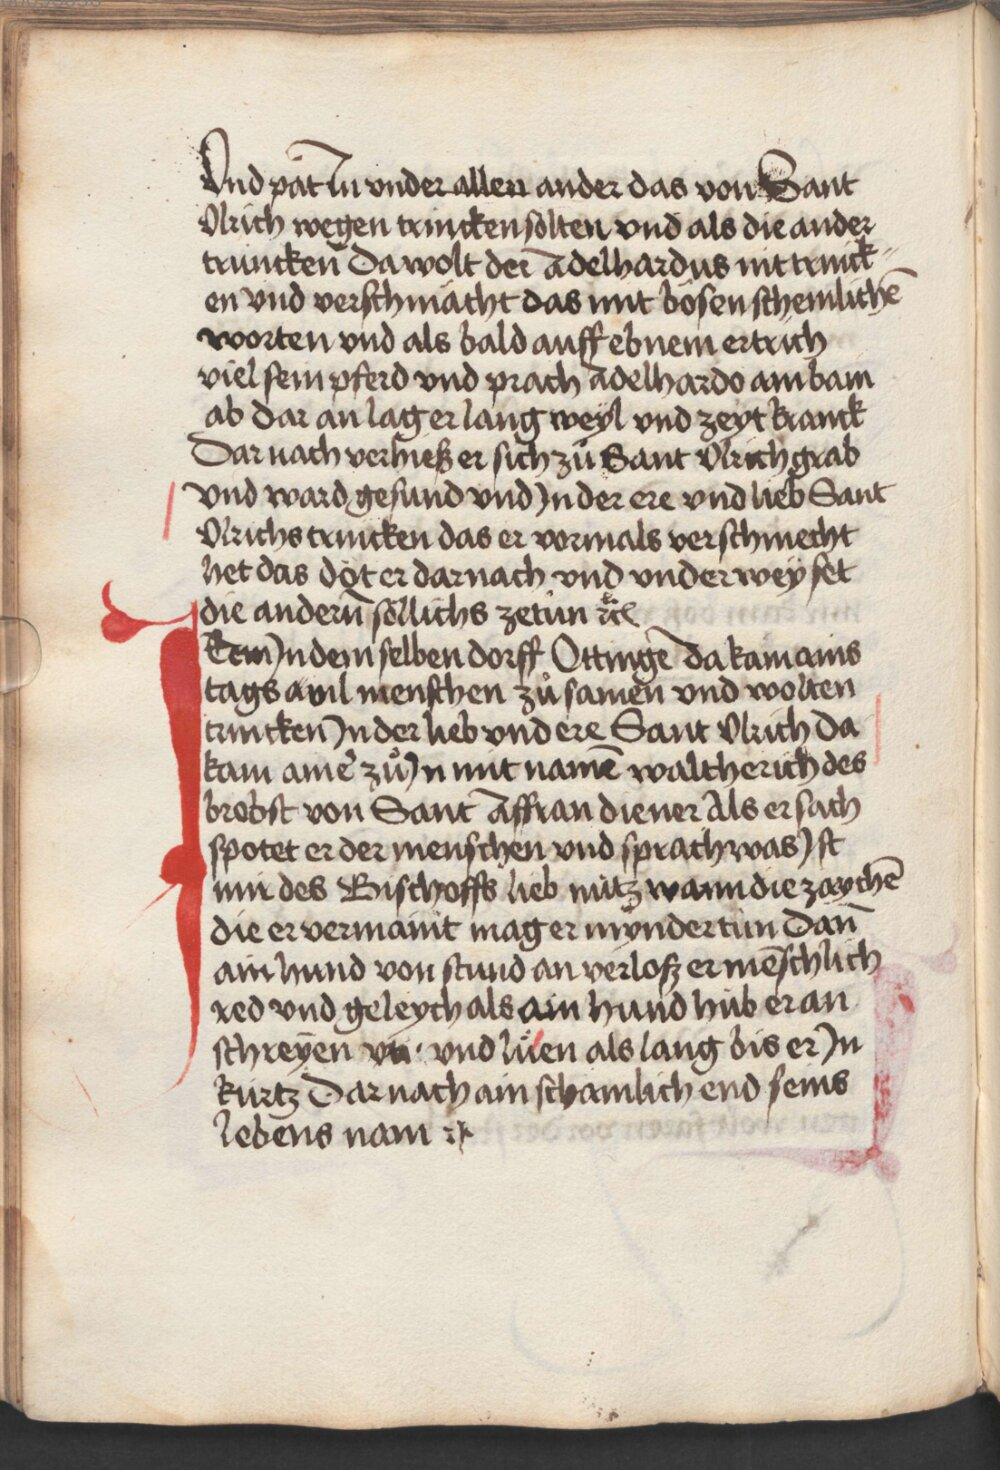 Vnd pat In vnder allen ander das von Sant
Vlrich wegen trincken solten vnd als die ander
truncken Da wolt der Adelhardus nit trinck-
en vnd verschmächt das mit bösen schemlichē
worten vnd als bald auff ebnem ertrich
viel sein pferd vnd prach Adelhardo ain bain
ab dar an lag er lang weyl vnd zeyt kranck
Dar nach verhieß er sich zů Sant Vlrich grab
vnd ward gesund vnd In der ere vnd lieb Sant
Vlrichs trincken das er vormals verschmecht
het das dot er darnach vnd vnderweyset
die andern söllichs zetun rc̃
Item In dem selben dorff Ottingē da kam ains
tags a vil menschen zů samen vnd wolten
trincken In der lieb vnd ere Sant Vlrich Da
kam ainer zů In mit namē waltherich des
brobst von Sant Affran diener Als er sach
spotet er der menschen vnd sprach was Ist
mir des Bischoffs lieb nütz wann die zaychē
die er vermaint mag er mynder tun Dañ
ain hund von stund an verloß er mēschlich
red vnd geleych als ain hund hub er an
schreyen vn vnd lüen als lang bis er In
kurtz Dar nach ain schamlich end seins
lebens nam